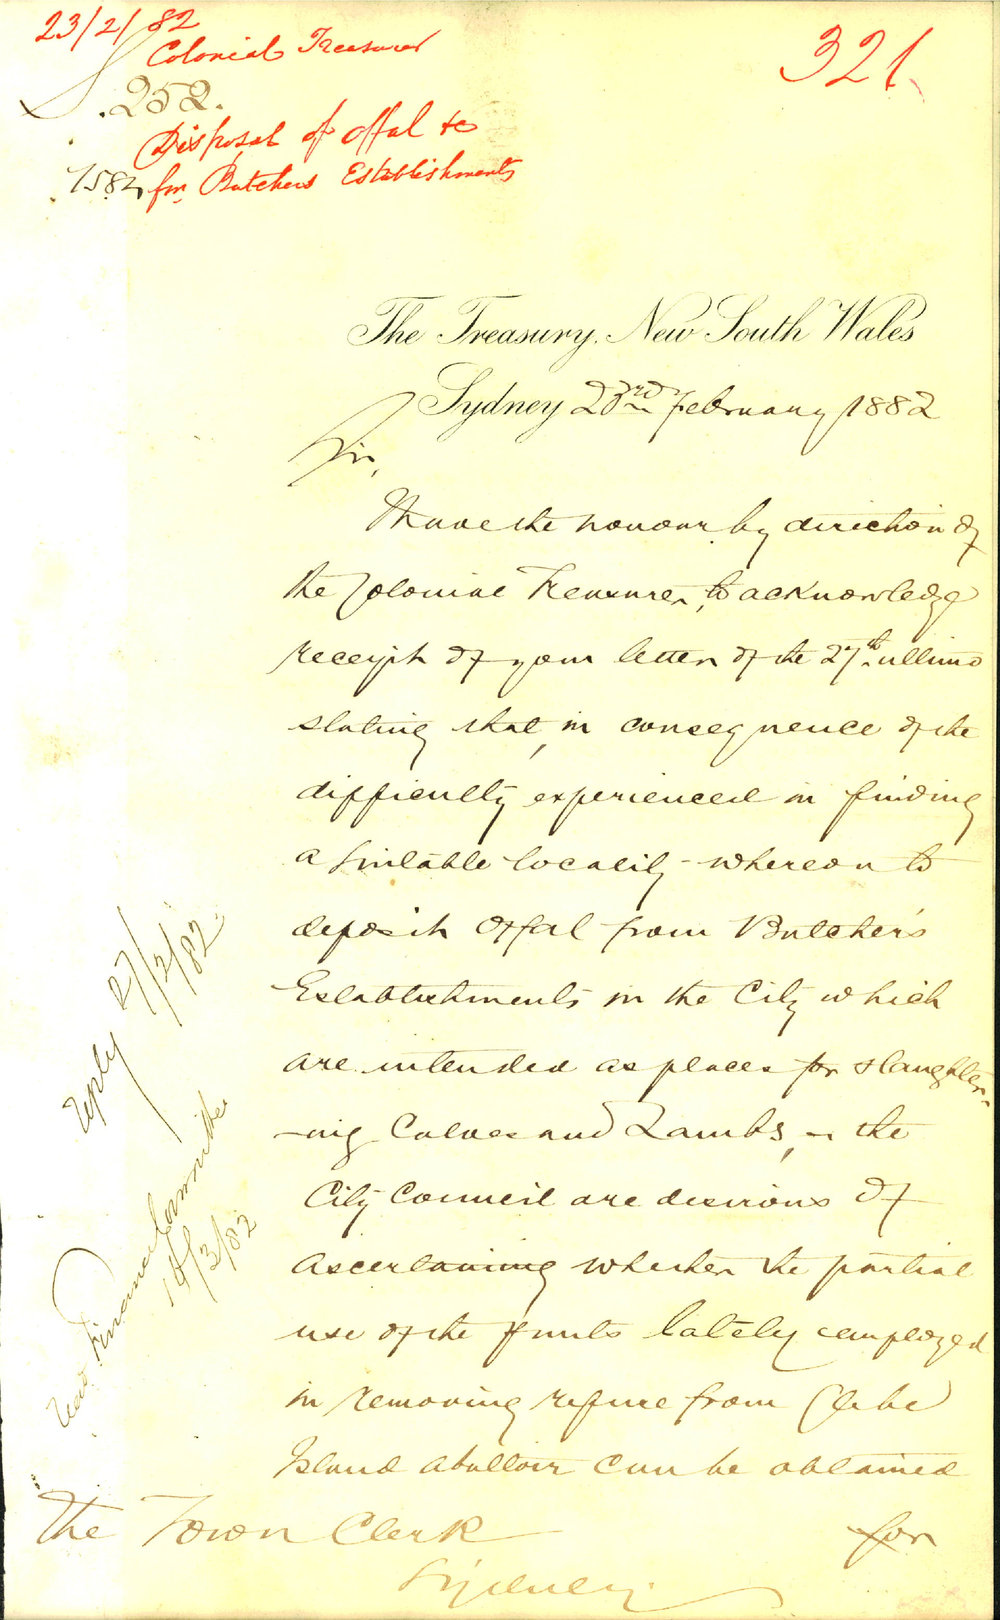 23/2/82
Colonial Treasurer
321
.252.
Disposal of offal &c
1582 for Butchers Establishments
The Treasury, New South Wales
Sydney 23rd February 1882
Sir,
I have the honour, by direction of
the Colonial Treasurer, to acknowledge
receipt of your letter of the 27th ultimo
stating that, in consequence of the
difficulty experienced in finding
a suitable locality whereon to
deposit offal from Butcher's
Establishments in the City which
are intended as places for slaughter-
-ing Calves and Lambs, the
City Council are desirous of
ascertaining whether the partial
use of the punts lately employed
in removing refuse from Glebe
Island abattoir can be obtained
for
The Town Clerk
Sydney.
Reply 27/2/82
Read Finance Committee
14/3/82